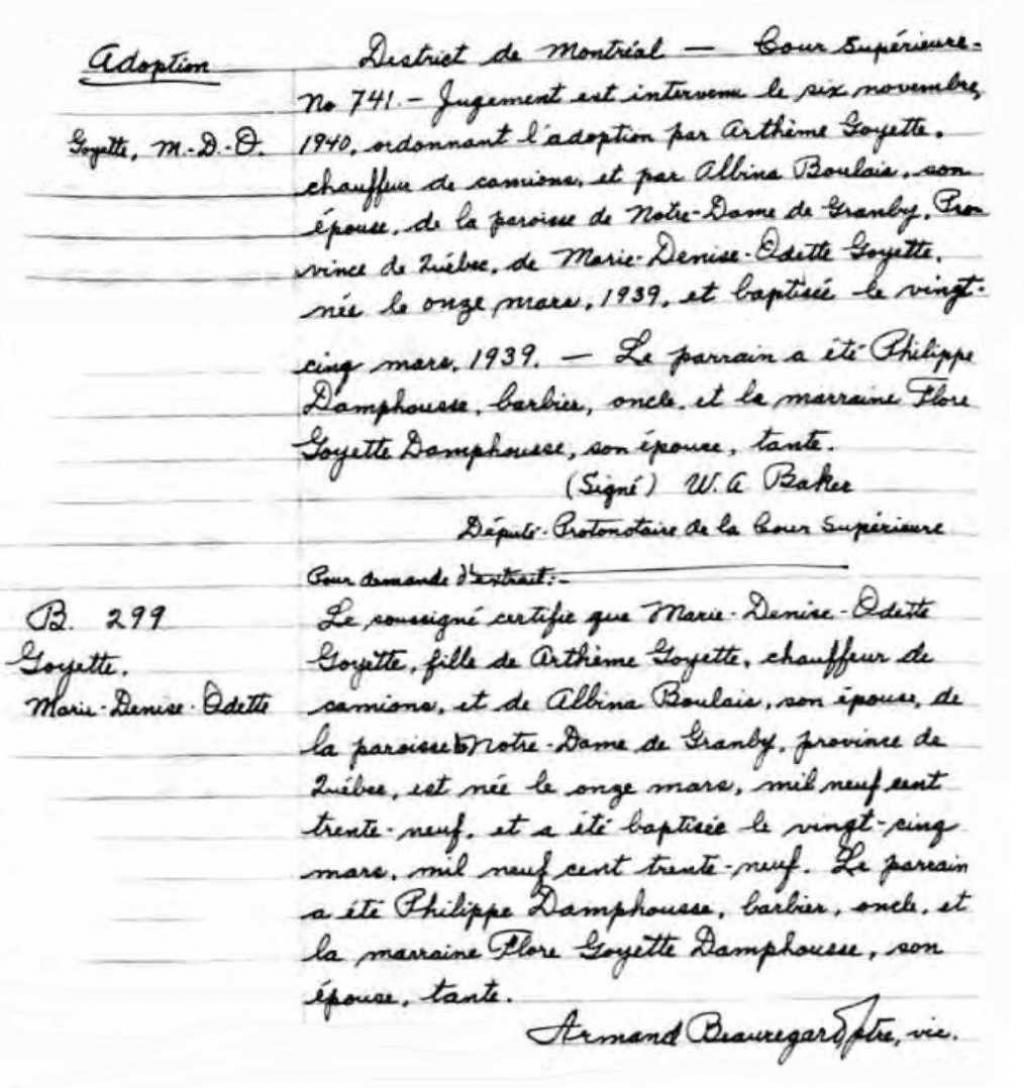 Adoption
District de Montréal — Cour Supérieure-
No 741.- Jugement est intervenu le six novembre,
Goyette, M.-D.-O.
1940, ordonnant l'adoption par Arthème Goyette,
chauffeur de camions, et par Albina Boulais, son
épouse, de la paroisse de Notre-Dame de Granby, Pro-
vince de Québec, de Marie-Denise-Odette Goyette,
née le onze mars, 1939, et baptisée le vingt-
cinq mars, 1939. — Le parrain a été Philippe
Damphousse, barbier, oncle, et la marraine Flore
Goyette Damphousse, son épouse, tante.
(Signé) W. A Baker
Député-Protonotaire de la Cour Supérieure
Pour demande d'extrait:-
B. 299
Goyette,
Marie-Denise-Odette
Le soussigné certifie que Marie-Denise-Odette
Goyette, fille de Arthème Goyette, chauffeur de
camions, et de Albina Boulais, son épouse, de
la paroisse Notre-Dame de Granby, province de
Québec, est née le onze mars, mil neuf cent
trente-neuf, et a été baptisée le vingt-cinq
mars, mil neuf cent trente-neuf. Le parrain
a été Philippe Damphousse, barbier, oncle, et
la marraine Flore Goyette Damphousse, son
épouse, tante.
Armand Beauregard, ptre, vic.